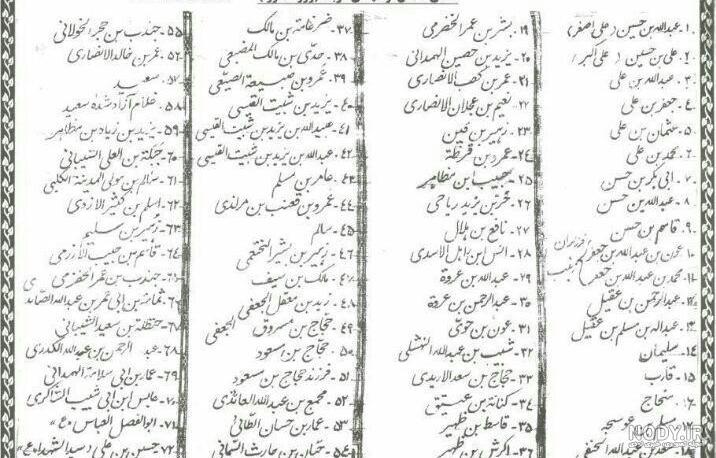 ۱- عبدالله بن حسین (علی اصغر)
۲- علی بن حسین (علی اکبر)
۳- عبدالله بن علی
۴- جعفر بن علی
۵- عثمان بن علی
۶- محمد بن علی
۷- ابی بکر بن حسن
۸- عبدالله بن حسن
۹- قاسم بن حسن
۱۰- عون بن عبدالله بن جعفر
فرزندان زینب
۱۱- محمد بن عبدالله بن جعفر
۱۲- عبدالرحمن بن عقیل
۱۳- عبدالله بن مسلم بن عقیل
۱۴- سلیمان
۱۵- قارب
۱۶- منحاج
مسلم بن عوسجه
۱۸- سعد بن عبدالله الحنفی
۱۹- بشر بن عمر الحضرمی
۲۰- یزید بن حصین الهمدانی
۲۱- عمر بن کعب الانصاری
۲۲- نعیم بن عجلان الانصاری
۲۳- زهیر بن قین
۲۴- عمرو بن قرظة
۲۵- حبیب ابن مظاهر
۲۶- حر بن یزید ریاحی
۲۷- نافع بن هلال
۲۸- انس ابن کاهل الاسدی
۲۹- عبدالله بن عروة
۳۰- عبدالرحمن بن عروة
۳۱- عون بن جوی
۳۲- شبیب بن عبدالله النهشلی
۳۳- حجاج بن سعد
۳۴- کنانة بن عتیق
۳۵- قاسط بن ظهیر
۳۶- کرش بن ظهیر
۳۷- ضرغامة بن مالک
۳۸- حدی بن مالک
۳۹- عمرو بن ضبیعة الضبیعی
۴۰- یزید بن ثبیت القیسی
۴۱- عبیدالله بن یزید بن ثبیت القیسی
۴۲- عبدالله بن یزید بن ثبیت القیسی
۴۳- عامر بن مسلم
۴۴- عمرو بن قعنب بن
۴۵- سالم
۴۶- زهیر بن بشر الخثعمی
۴۷- مالک بن سیف
۴۸- زید بن معقل الجعفی
۴۹- حجاج بن مسروق الجعفی
۵۰- حجاج بن مسعود
۵۱- فرزند حجاج بن مسعود
۵۲- مجمع بن عبدالله العائذی
۵۳- عمار بن حسان الطائی
۵۴- حیان بن حارث السلمانی
۵۵- جندب بن حجر الخولانی
۵۶- عمر بن خالد الانصاری
۵۷- سعید
۵۸- غلام آزاد شده سعید
۵۹- یزید بن زیاد بن مظاهر
۶۰- جبلة بن العلی الشیبانی
۶۱- سالم بن مولی المدینة الکلبی
۶۲- اسلم بن کثیر الازدی
۶۳- زهیر بن سلیم
۶۴- قاسم بن حبیب الازدی
۶۵- جندب بن عمر الحضرمی
ثمامة بن ابی عمر بن عبدالله الصائدی
۶۷- حنظلة بن سعید الشیبانی
۶۸- عبد الرحمن بن عبدالله الکدری
۶۹- عمار بن ابی سلامة الهمدانی
عابس ابن ابی شبیب الشاکری
۷۱- ابوالفضل العباس «ع»
۷۲- حسین بن علی (سید الشهداء ع)
NODY.IR